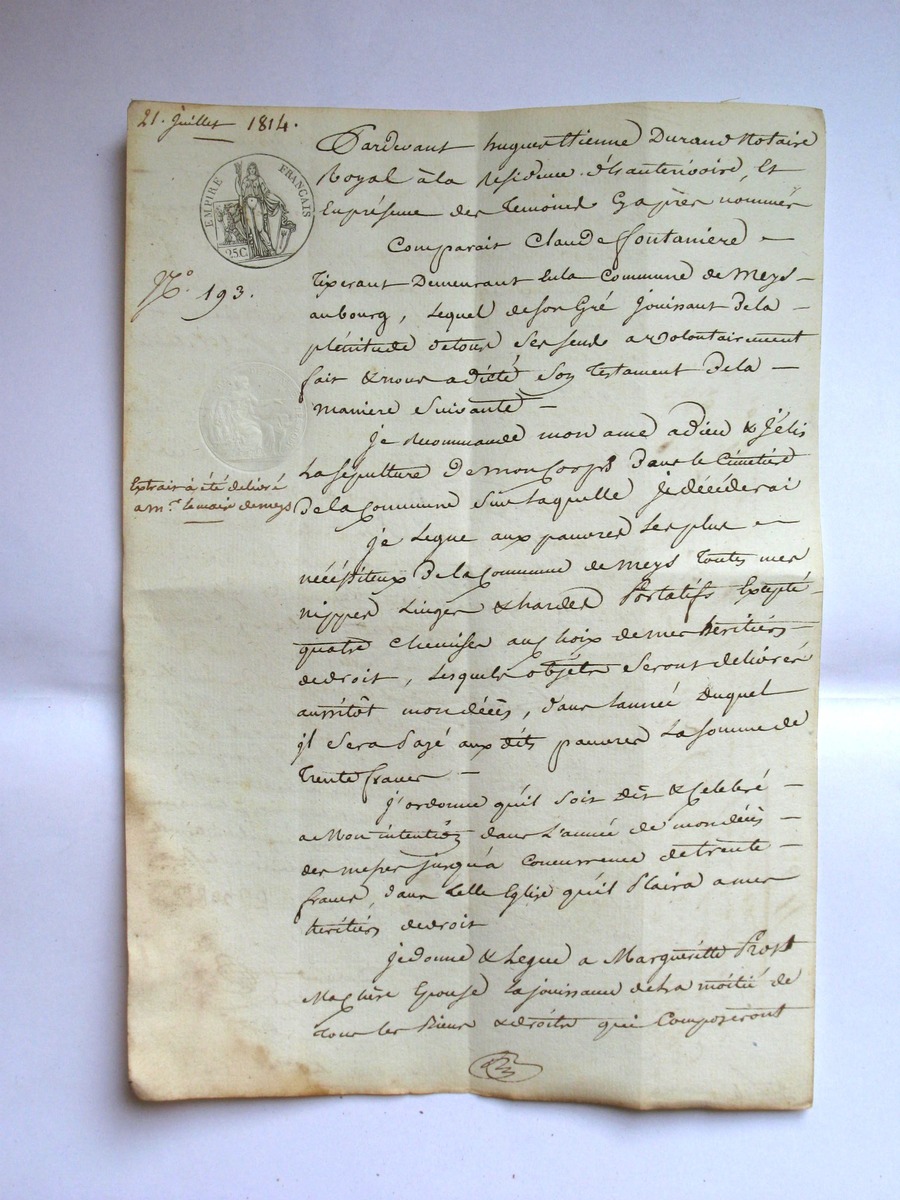 21. Juillet 1814.
EMPIRE FRANÇAIS
25 C.
N.o 193.
Extrait à été délivré
a m.r le maire de meys
Pardevant hugues Etienne Durand Notaire
Royal à la Residence d'hauterivoire, Et
En présence des Temoins Cy après nommés
Comparait Claude fontaniere –
Tixerant Demeurant En la Commune de Meys –
au bourg, Lequel de son Gré Jouissant de la –
plénitude de tous Ses Sens a volontairement
fait & nous a dicté Son Testament de la –
maniere Suivante –
je recommande mon ame a dieu & J'élis
La Sépulture de mon Corps dans le Cimetière
De la Commune Sur Laquelle Je décéderai
je Legue aux pauvres Les plus –
nécéssiteux De la Commune de meys Toutes mes
nippes Linges & hardes Portatifs Excepté
quatre Chemises au Choix de mes héritiers
de droit, Lesquels objets Seront délivrés
aussitôt mon décès, dans L'année Duquel
jl Sera Payé aux dits pauvres La Somme de
Trente francs –
j'ordonne qu'il soit Dit & Celebré –
a Mon intention dans L'année de mon décès –
des messes jusqu'a Concurrence de trente –
francs, dans Telle Eglise qu'il Plaira a mes
héritiers de droit
je donne & Legue a Marguerite
Ma Chère Epouse La jouissance de La moitié de
Tous les Biens & droits qui Composeront